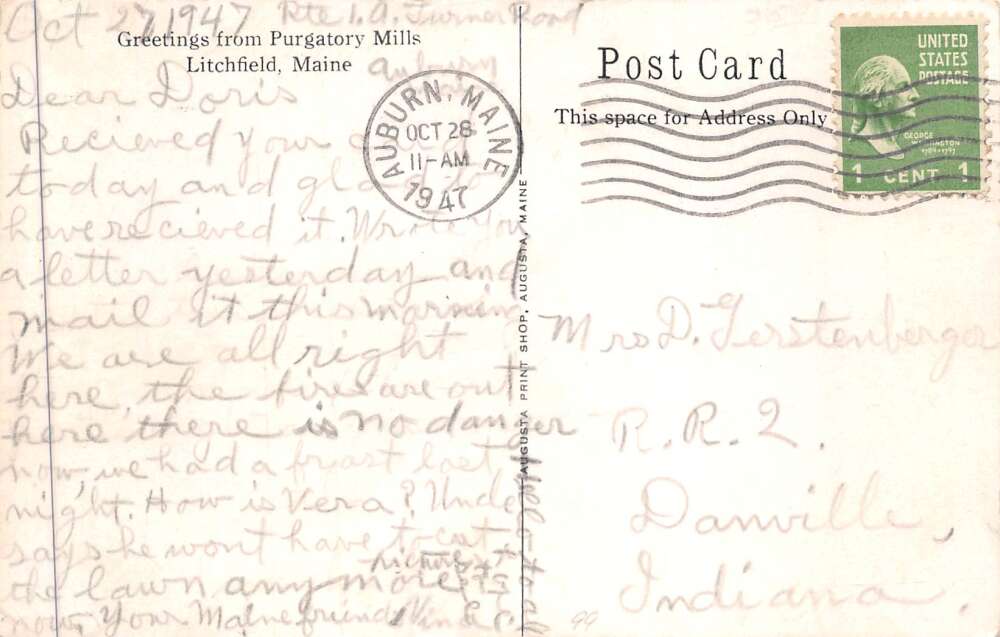 Oct 27 1947 Rte 1. A. Turner Road
Auburn
Greetings from Purgatory Mills
Litchfield, Maine
Dear Doris
Recieved your
today and glad to
have recieved it. Wrote you
a letter yesterday and
mail it this morning
We are all right
here, the fires are out
here there is no danger
now, we had a frost last
night. How is Vera?
says he wont have to cut
the lawn any more
now, Your Maine friend
Hello to all
picture
AUGUSTA PRINT SHOP, AUGUSTA, MAINE
Post Card
This space for Address Only
AUBURN, MAINE
OCT 28
11-AM
1947
UNITED
STATES
POSTAGE
GEORGE
WASHINGTON
1789-1797
1 CENT 1
Mrs D. Gerstenberger
R. R. 2.
Danville,
Indiana.
99